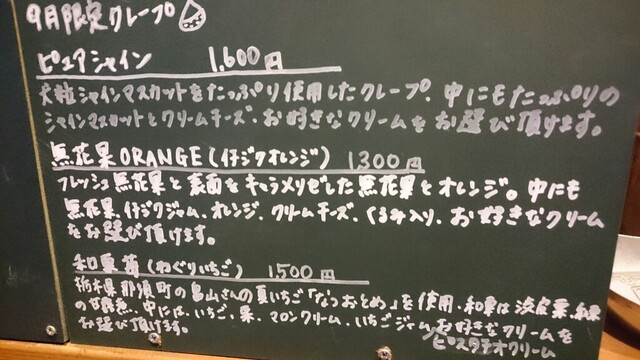 9月限定クレープ
ピュアシャイン 1,600円
大粒シャインマスカットをたっぷり使用したクレープ、中にもたっぷりの
シャインマスカットとクリームチーズ・お好きなクリームをお選び頂けます。
無花果ORANGE(イチジクオレンジ) 1300円
フレッシュ無花果と表面をキャラメリゼした無花果とオレンジ。中にも
無花果、イチジクジャム、オレンジ、クリームチーズ、くるみ入り、お好きなクリーム
をお選び頂けます。
和栗苺(わぐりいちご) 1,500円
栃木県那須町の畠山さんの夏いちご「なつおとめ」を使用・和栗は渋皮栗、和栗
の甘露煮、中には、いちご、栗、マロンクリーム、いちごジャム、お好きなクリームを
お選び頂けます。
ピスタチオクリーム